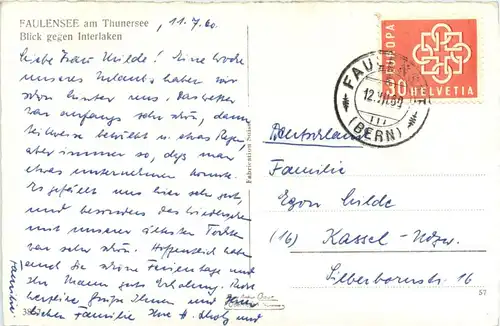 FAULENSEE am Thunersee
Blick gegen Interlaken
11.7.60.
Liebe Frau Wilde! Eine Woche
unseres Urlaubs haben wir
schon hinter uns. Das Wetter
war anfangs sehr schön, dann
teilweise bewölkt u. etwas Regen,
aber immer so, dass man
etwas unternehmen konnte.
Es gefällt uns hier sehr gut,
und besonders das Wiedersehen
mit unserer ältesten Tochter
war sehr schön. Hoffentlich haben
auch Sie schöne Ferientage und
Ihr Mann gute Erholung. Recht
herzliche Grüße Ihnen und
lichen Familie Ihre H.
und
Familie
38
Fabrication Suisse
EUROPA
30 HELVETIA
FAULENSEE
12.VII.60
(BERN)
Deutschland
Familie
Egon Wilde
(16) Kassel - Ndzw.
Silberbornstr. 16
57